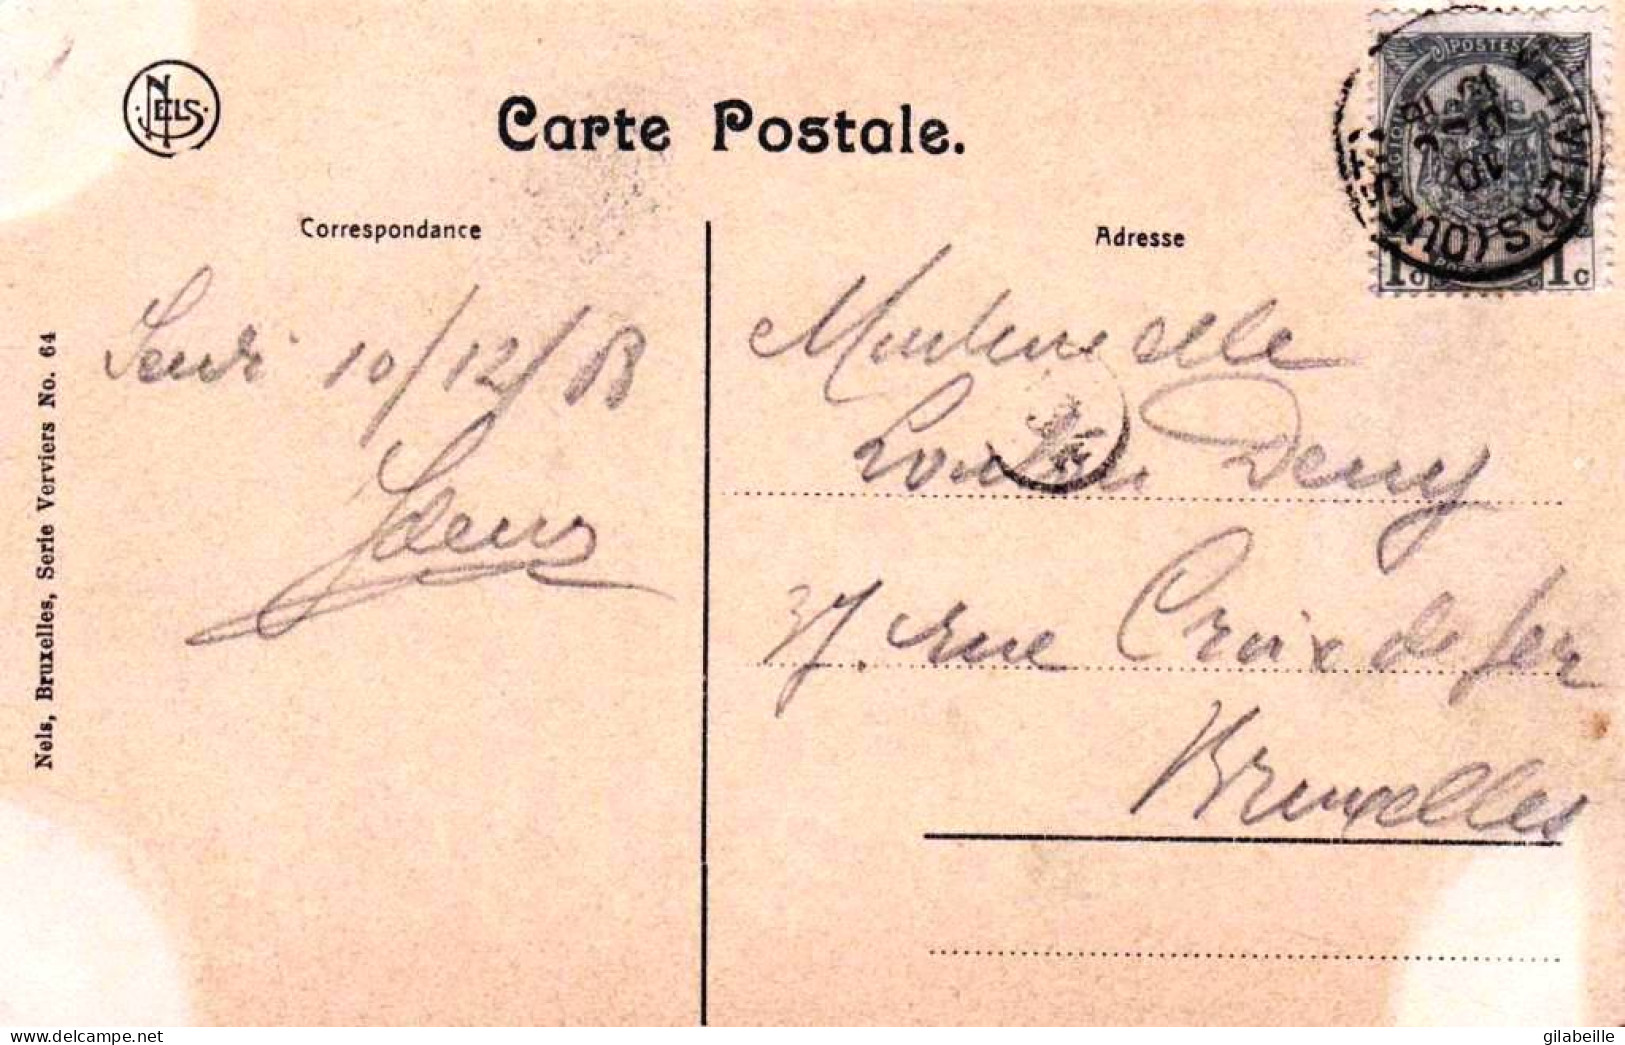 NELS
Carte Postale.
Correspondance
Adresse
POSTES
1c 1c
VERVIERS (OUEST)
10
10/12/
Mademoiselle
Louisa Deny
37. rue Croix de fer
Bruxelles
Nels, Bruxelles, Serie Verviers No. 64
gilabeille